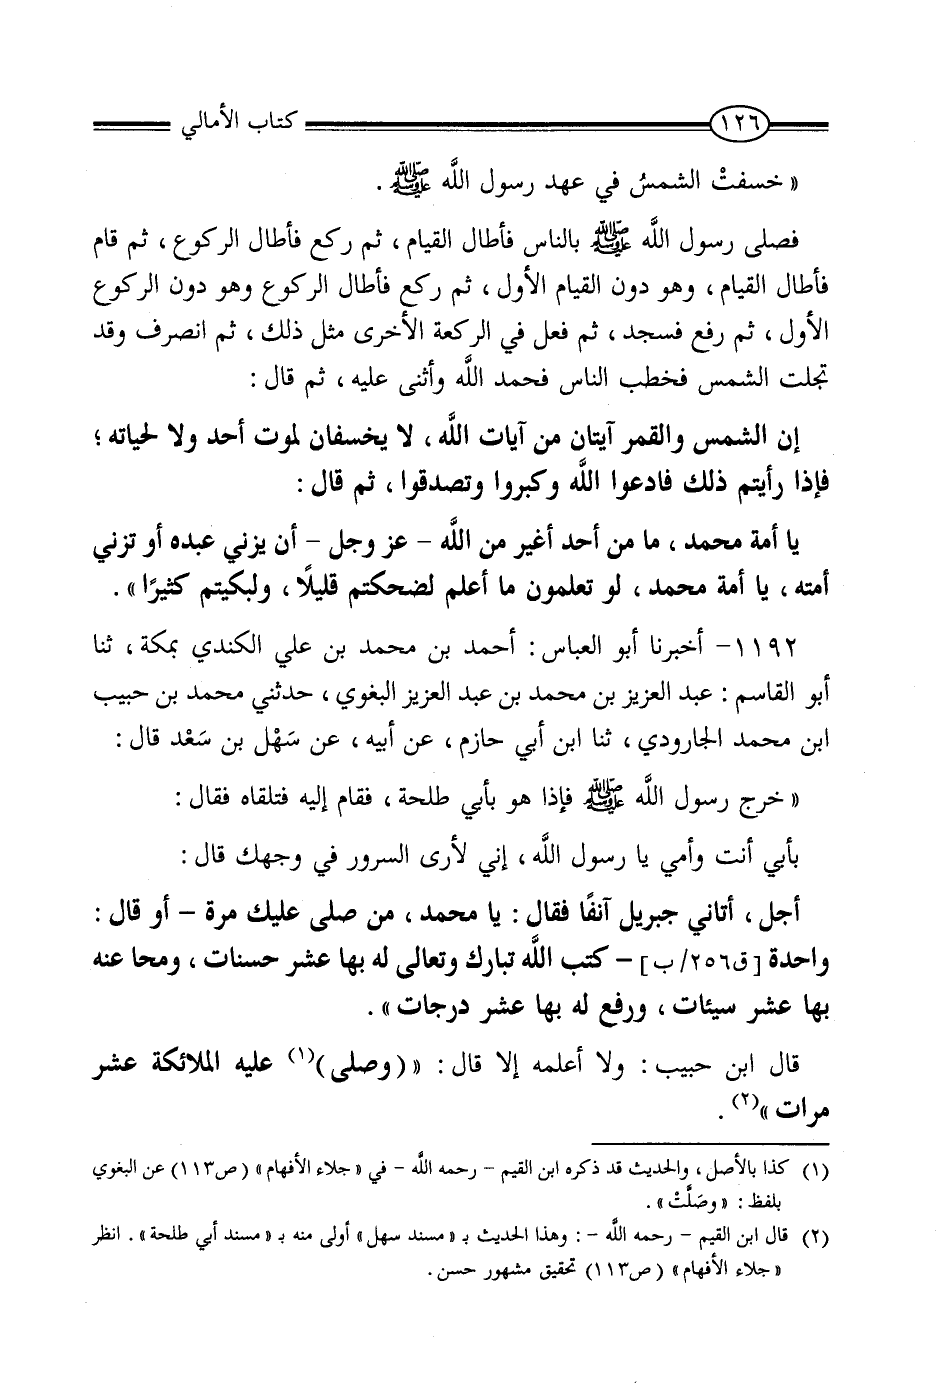 ١٢٦ كتاب الأمالي
« خسفتْ الشمسُ في عهد رسول اللَّه ﷺ .
فصلى رسول اللَّه ﷺ بالناس فأطال القيام ، ثم ركع فأطال الركوع ، ثم قام
فأطال القيام ، وهو دون القيام الأول ، ثم ركع فأطال الركوع وهو دون الركوع
الأول ، ثم رفع فسجد ، ثم فعل في الركعة الأخرى مثل ذلك ، ثم انصرف وقد
تجلت الشمس فخطب الناس فحمد اللَّه وأثنى عليه ، ثم قال :
إن الشمس والقمر آيتان من آيات اللَّه ، لا يخسفان لموت أحد ولا لحياته ؛
فإذا رأيتم ذلك فادعوا اللَّه وكبروا وتصدقوا ، ثم قال :
يا أمة محمد ، ما من أحد أغير من اللَّه – عز وجل – أن يزني عبده أو تزني
أمته ، يا أمة محمد ، لو تعلمون ما أعلم لضحكتم قليلًا ، ولبكيتم كثيرًا » .
١١٩٢– أخبرنا أبو العباس : أحمد بن محمد بن علي الكندي بمكة ، ثنا
أبو القاسم : عبد العزيز بن محمد بن عبد العزيز البغوي ، حدثني محمد بن حبيب
ابن محمد الجارودي ، ثنا ابن أبي حازم ، عن أبيه ، عن سَهْل بن سَعْد قال :
« خرج رسول اللَّه ﷺ فإذا هو بأبي طلحة ، فقام إليه فتلقاه فقال :
بأبي أنت وأمي يا رسول اللَّه ، إني لأرى السرور في وجهك قال :
أجل ، أتاني جبريل آنفًا فقال : يا محمد ، من صلى عليك مرة – أو قال :
واحدة [ق٢٥٦/ب] – كتب اللَّه تبارك وتعالى له بها عشر حسنات ، ومحا عنه
بها عشر سيئات ، ورفع له بها عشر درجات » .
قال ابن حبيب : ولا أعلمه إلا قال : « (وصلى)(١) عليه الملائكة عشر
مرات »(٢) .
(١) كذا بالأصل ، والحديث قد ذكره ابن القيم – رحمه اللَّه – في « جلاء الأفهام » (ص١١٣) عن البغوي
بلفظ : « وصَلَّتْ » .
(٢) قال ابن القيم – رحمه اللَّه – : وهذا الحديث بـ « مسند سهل » أولى منه بـ « مسند أبي طلحة » . انظر
« جلاء الأفهام » (ص١١٣) تحقيق مشهور حسن .